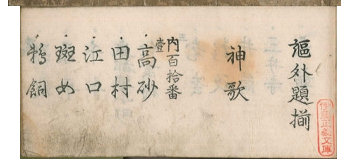 謳外題揃
神歌
内百拾番
壹
高砂
田村
江口
斑女
鵜飼